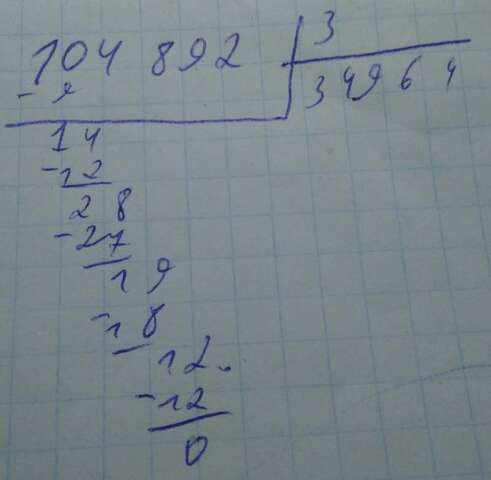 104 892 3
- 9 34964
14
-12
28
-27
19
-18
12.
-12
0